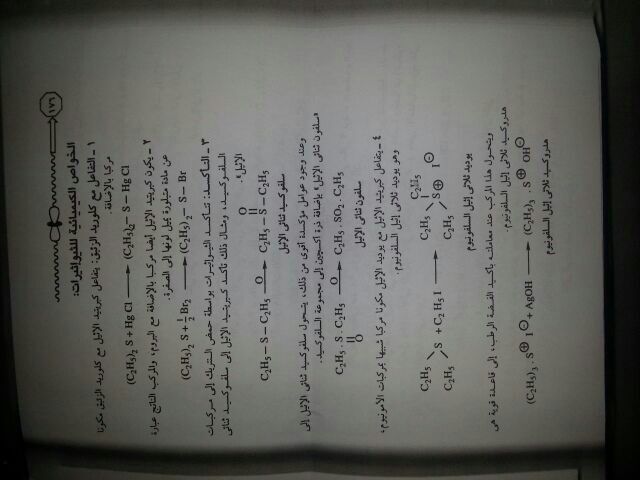 ١٧٦
الخواص الكيميائية للثيوإثيرات:
١ - التفاعل مع كلوريد الزئبق: يتفاعل كبريتيد الإثيل مع كلوريد الزئبق مكونا
مركبا بالإضافة.
(C₂H₅)₂ S + Hg Cl ⟶ (C₂H₅)₂– S – Hg Cl
٢ - يكون كبريتيد الإثيل أيضا مركبا بالإضافة مع البروم، والمركب الناتج عبارة
عن مادة متبلورة يميل لونها إلى الصفرة.
(C₂H₅)₂ S + ½ Br₂ ⟶ (C₂H₅)₂ – S – Br
٣ - التأكسد: تتأكسد الثيوإثيرات بواسطة حمض النتريك إلى مركبات
السلفوكسيد، ومثال ذلك تأكسد كبريتيد الإثيل إلى سلفوكسيد ثنائى
الإثيل.
C₂H₅ – S – C₂H₅ —O⟶ C₂H₅ – S(=O) – C₂H₅
سلفوكسيد ثنائى الإثيل
وعند وجود عوامل مؤكسدة أقوى من ذلك، يتحول سلفوكسيد ثنائى الإثيل إلى
«سلفون ثنائى الإثيل» بإضافة ذرة أكسجين إلى مجموعة السلفوكسيد.
C₂H₅ . S(=O) . C₂H₅ —O⟶ C₂H₅ . SO₂ . C₂H₅
سلفون ثنائى الإثيل
٤ - يتفاعل كبريتيد الإثيل مع يوديد الإثيل مكونا مركبا شبيها بمركبات الأمونيوم،
وهو يوديد ثلاثى إثيل السلفونيوم.
C₂H₅ C₂H₅ S + C₂H₅I ⟶ C₂H₅ C₂H₅ C₂H₅ S⊕ I⊖
يوديد ثلاثى إثيل السلفونيوم
ويتحول هذا المركب عند معاملته بأكسيد الفضة الرطب، إلى قاعدة قوية هى
هدروكسيد ثلاثى إثيل السلفونيوم.
(C₂H₅)₃ . S⊕ I⊖ + AgOH ⟶ (C₂H₅)₃ . S⊕ OH⊖
هدروكسيد ثلاثى إثيل السلفونيوم